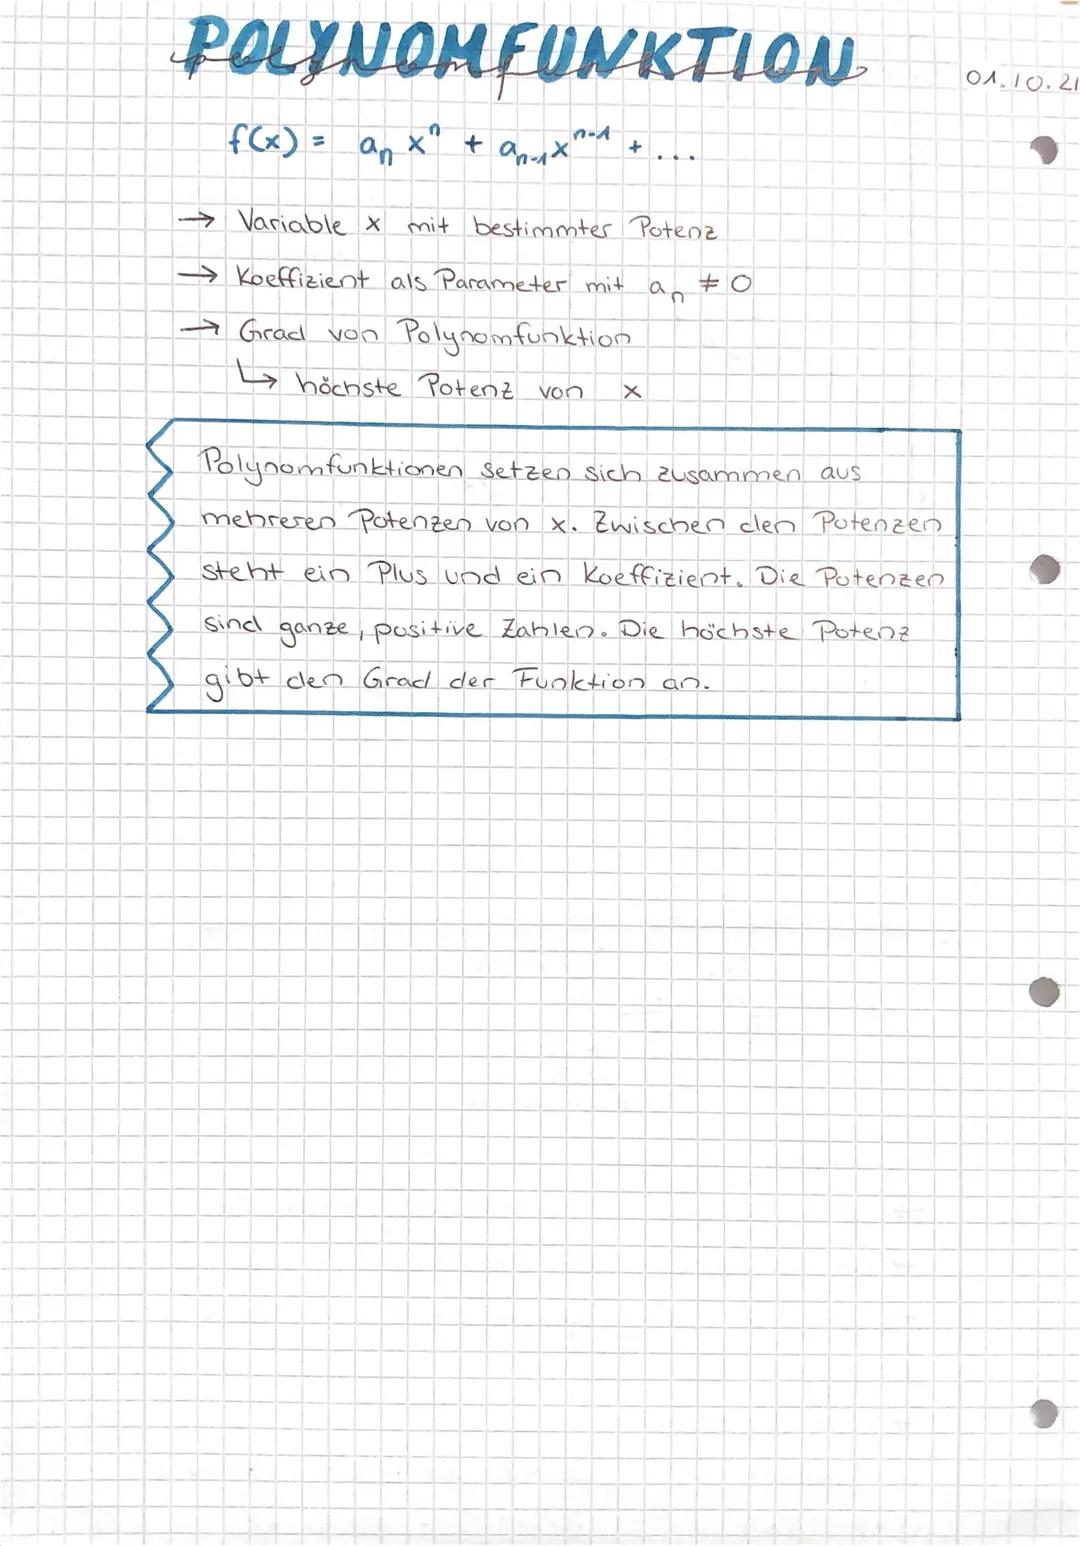 POLYNOMFUNKTION
polynomfunktion
01.10.21
f(x) = aₙ xⁿ + aₙ₋₁ xⁿ⁻¹ + ...
→ Variable x mit bestimmter Potenz
→ Koeffizient als Parameter mit aₙ ≠ 0
→ Grad von Polynomfunktion
↳ höchste Potenz von x
Polynomfunktionen setzen sich zusammen aus
mehreren Potenzen von x. Zwischen den Potenzen
steht ein Plus und ein Koeffizient. Die Potenzen
sind ganze, positive Zahlen. Die höchste Potenz
gibt den Grad der Funktion an.